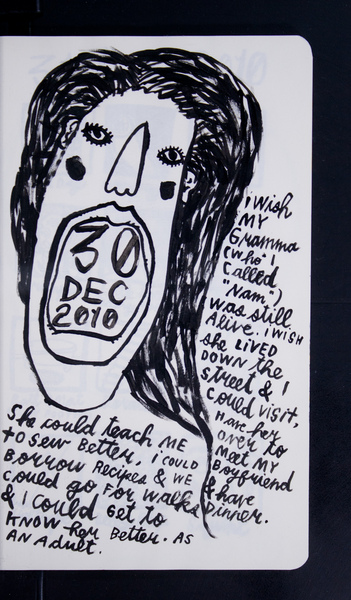 30
DEC
2010
i wish
MY
Gramma
(who I
called
"Nam")
was still
Alive. I WISH
she LIVED
DOWN the
street & I
could visit,
Have her
over to
Meet MY
Boyfriend
& have
Dinner.
She could teach ME
to sew Better, i could
Borrow Recipes & WE
could go For walks
& I could Get to
KNOW her Better. AS
AN Adult.